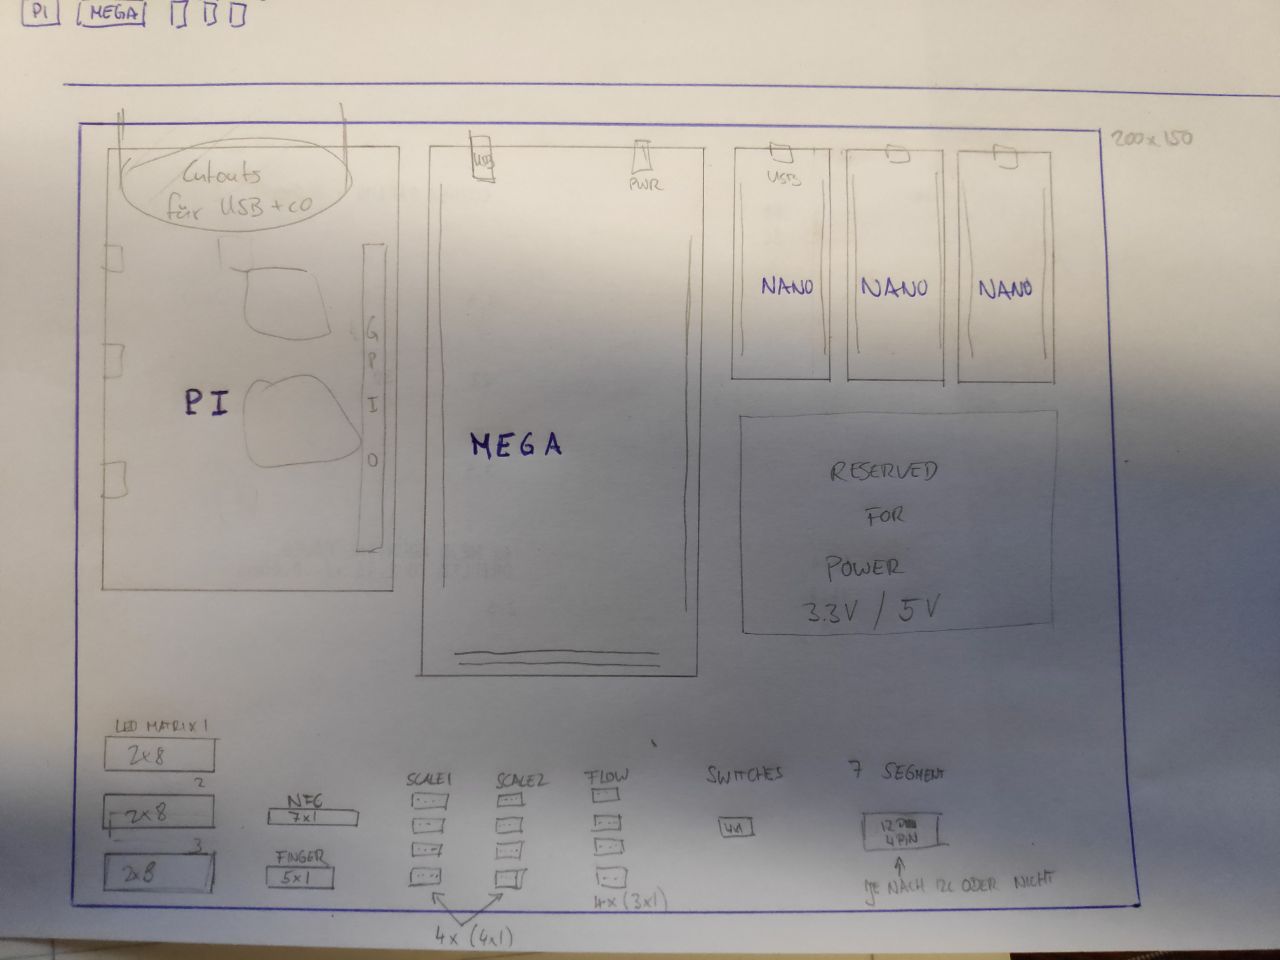 PI MEGA
200x150
Cutouts
für USB + CO
USB
PWR
USB
NANO NANO NANO
G
P
I
O
PI
MEGA
RESERVED
FOR
POWER
3.3V / 5V
LED MATRIX 1
2x8
2
2x8
3
2x8
NFC
7x1
FINGER
5x1
SCALE1 SCALE2 FLOW
4x (4x1)
4x (3x1)
SWITCHES
4x1
7 SEGMENT
12 PIN
4 PIN
JE NACH I2C ODER NICHT